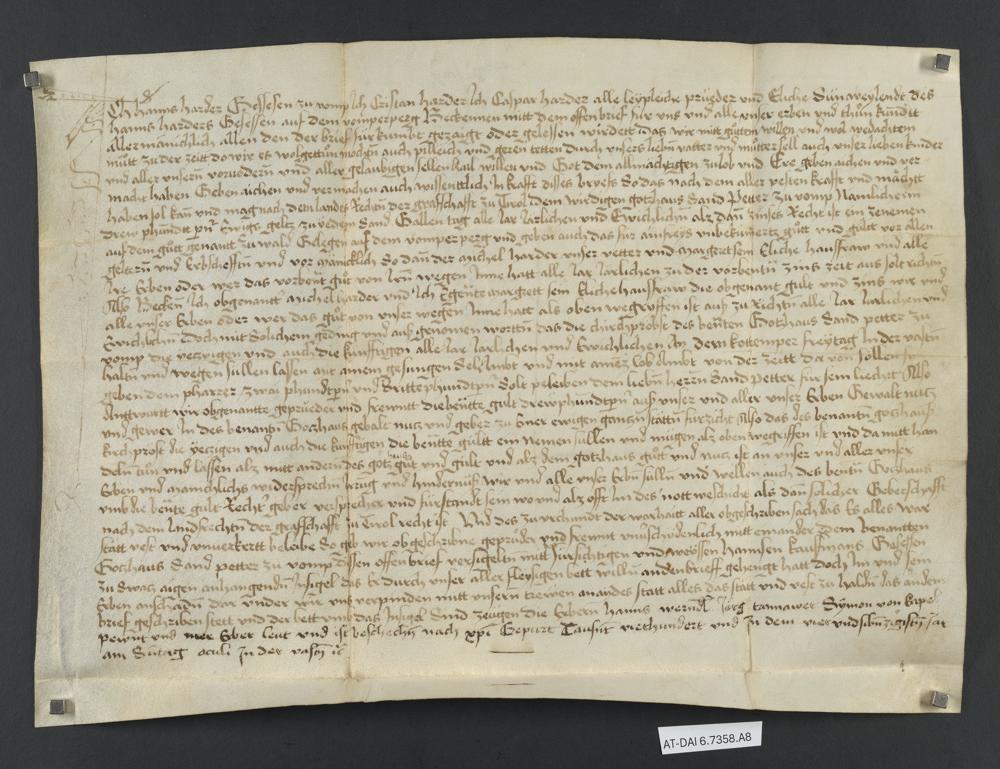 Ich hanns harder Gesessen zu vomp Ich Cristan harder Ich Caspar harder alle leypleiche prüeder vnd Eliche Sün weylendt des
hanns harders Gesessen auf dem vomperperg Bekennen mitt dem offenbrief für vns vnd alle vnser erben vnd thun kundtt
allermänichlich allen den der brief für kumbt gezaigt oder gelessen wirdett das wir mitt gutten willen vnd wol wedachtem
mutt zu der zeitt do wir es wolgettun mochtn auch pilleich vnd geren tetten durch vnsers liebn vatter vnd mutter sell auch vnser lieben kinder
vnd aller vnsern vorvödern vnd aller gelaubigen sellen hail willen vnd Got dem allmächtigen zu lob vnd Ere geben aichen vnd ver
macht haben Geben aichen vnd vermachen auch wissenttlich In krafft disses brieffs So das nach dem aller pesten krafft vnd macht
haben sol kan vnd mag nach dem landes Rechtn der graffschafft zu Tirol dem wirdigen gotzhaus Sand Petter zu vomp Namlichen
drew phundtt ewigs geltz zu yedem Sand Gallen tag alle Jar Järlichen vnd Ewichlichn alz dan zinses Recht ist ein zenemen
auf dem gutt genantt zu wald Gelegen auf dem vomperperg vnd geben auch das für ainfreys vnbekumertz gutt vnd gullt vor allen
geltern vnd Erbschefften vnd vor mänicklich So dan der michel harder vnser vetter vnd margret sein Eliche hausfraw vnd alle
Ire Erben oder wer das vorbenent gut von Irn wegen Inne hatt alle Jar Järlichen zu der vorbentn zins zeit aus solt richtn
Also Bekenn Ich obgenantt michel harder vnd Ich margrett sein Eliche hausfraw die obgenant gult vnd zins wir vnd
alle vnser Erben oder wer das gut von vnser wegen Inne hatt als oben wegriffen ist aus zu Richtn alle Jar Järlichen vnd
Ewichlichn doch mit Solichem geding vnd aus genomen wortn das die chirchpröbst des benten Gotzhaus Sand petter zu
vomp die yeczigen vnd auch die kunfftigen alle Jar Järlichen vnd Ewichlichen In dem kottemper freytag In der vasten
haltn vnd wegen sullen lassen mit ainem gesungen Selambt vnd mit ainem lobambt von der zeitt da von sollen sy
geben dem pharrer zwai phundtt vnd Dritte phundtt Solt peleiben dem liebn herrn Sand Petter für sein liecht Also
Antwurtt wir obgenantte geprüeder vnd frewntt die bentte gult drew phundtt aus vnser vnd aller vnser Erben Gewalt nutz
vnd gewer In des benantn Gotzhaus gebalt nutz vnd geber zu Einer ewigen stattn fürzicht Also das des benantn gotzhaus
kirchprost die yeczigen vnd auch die kunfftigen die bentte gultt ein nemen sullen vnd mugen alz oben wegriffen ist vnd da mitt han
deln tun vnd lassen alz mitt andern des gotzhaus gutt vnd gult vnd alz dem gotzhaus gutt vnd nutz ist an vnser vnd aller vnser
Erben vnd mänichlichs widersprechen Irrug vnd hindernüss wir vnd alle vnser Erbn sulln vnd wellen auch des bentn Gotzhaus
vmb die bente gult Recht geber versprecher vnd fürstandt sein wo vnd alz offt Im des nott weschicht als dan solicher Geberschafft
nach dem landsrechtn der graffschafft zu Tirol recht ist Vnd des zu vrchundt der warhait aller obgeschriben sach das Es alles war
stätt vest vnd vnuerkertt beleibe So geb wir obgeschribne geprüder vnd frewnt vnuschaidenlich mitt einander dem benantten
Gotzhaus Sand petter zu vomp dissen offen brief versigeltn mitt fürsichtigen vnd weissen hannsen kaufmans Gesessen
zu Swaz aigen anhangenden Insigel das Er durch vnser aller fleysigen bett willen an den brieff gehengt hatt doch Im vnd sein
Erben anschadn dar vnder wir vns verpinden mitt vnsern trewen an aides statt alles das statt vnd vest zu haltn das an dem
brief geschriben stett vnd der bett vmb das Insigel Sind zeugen die Erbern hanns werndl Jörg Symon von
vnd mer Erber leut vnd ist beschechn nach xpi Gepurt Tausent vierhundert vnd In dem vier vnd sibenzigistn Jar
am Suntag oculi In der vastn
AT-DAI 6.7358.A8